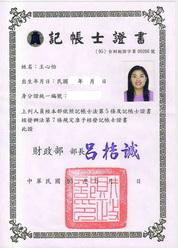 記帳士證書
(95)台財稅證字第00206號
姓名：王心怡
出生年月日：民國　年　月　日
身分證統一編號：
上列人員經本部依照記帳士法第5條及記帳士證書
核發辦法第7條規定准予核發記帳士證書
此證
財政部 部長 呂桔誠
中華民國 95 年